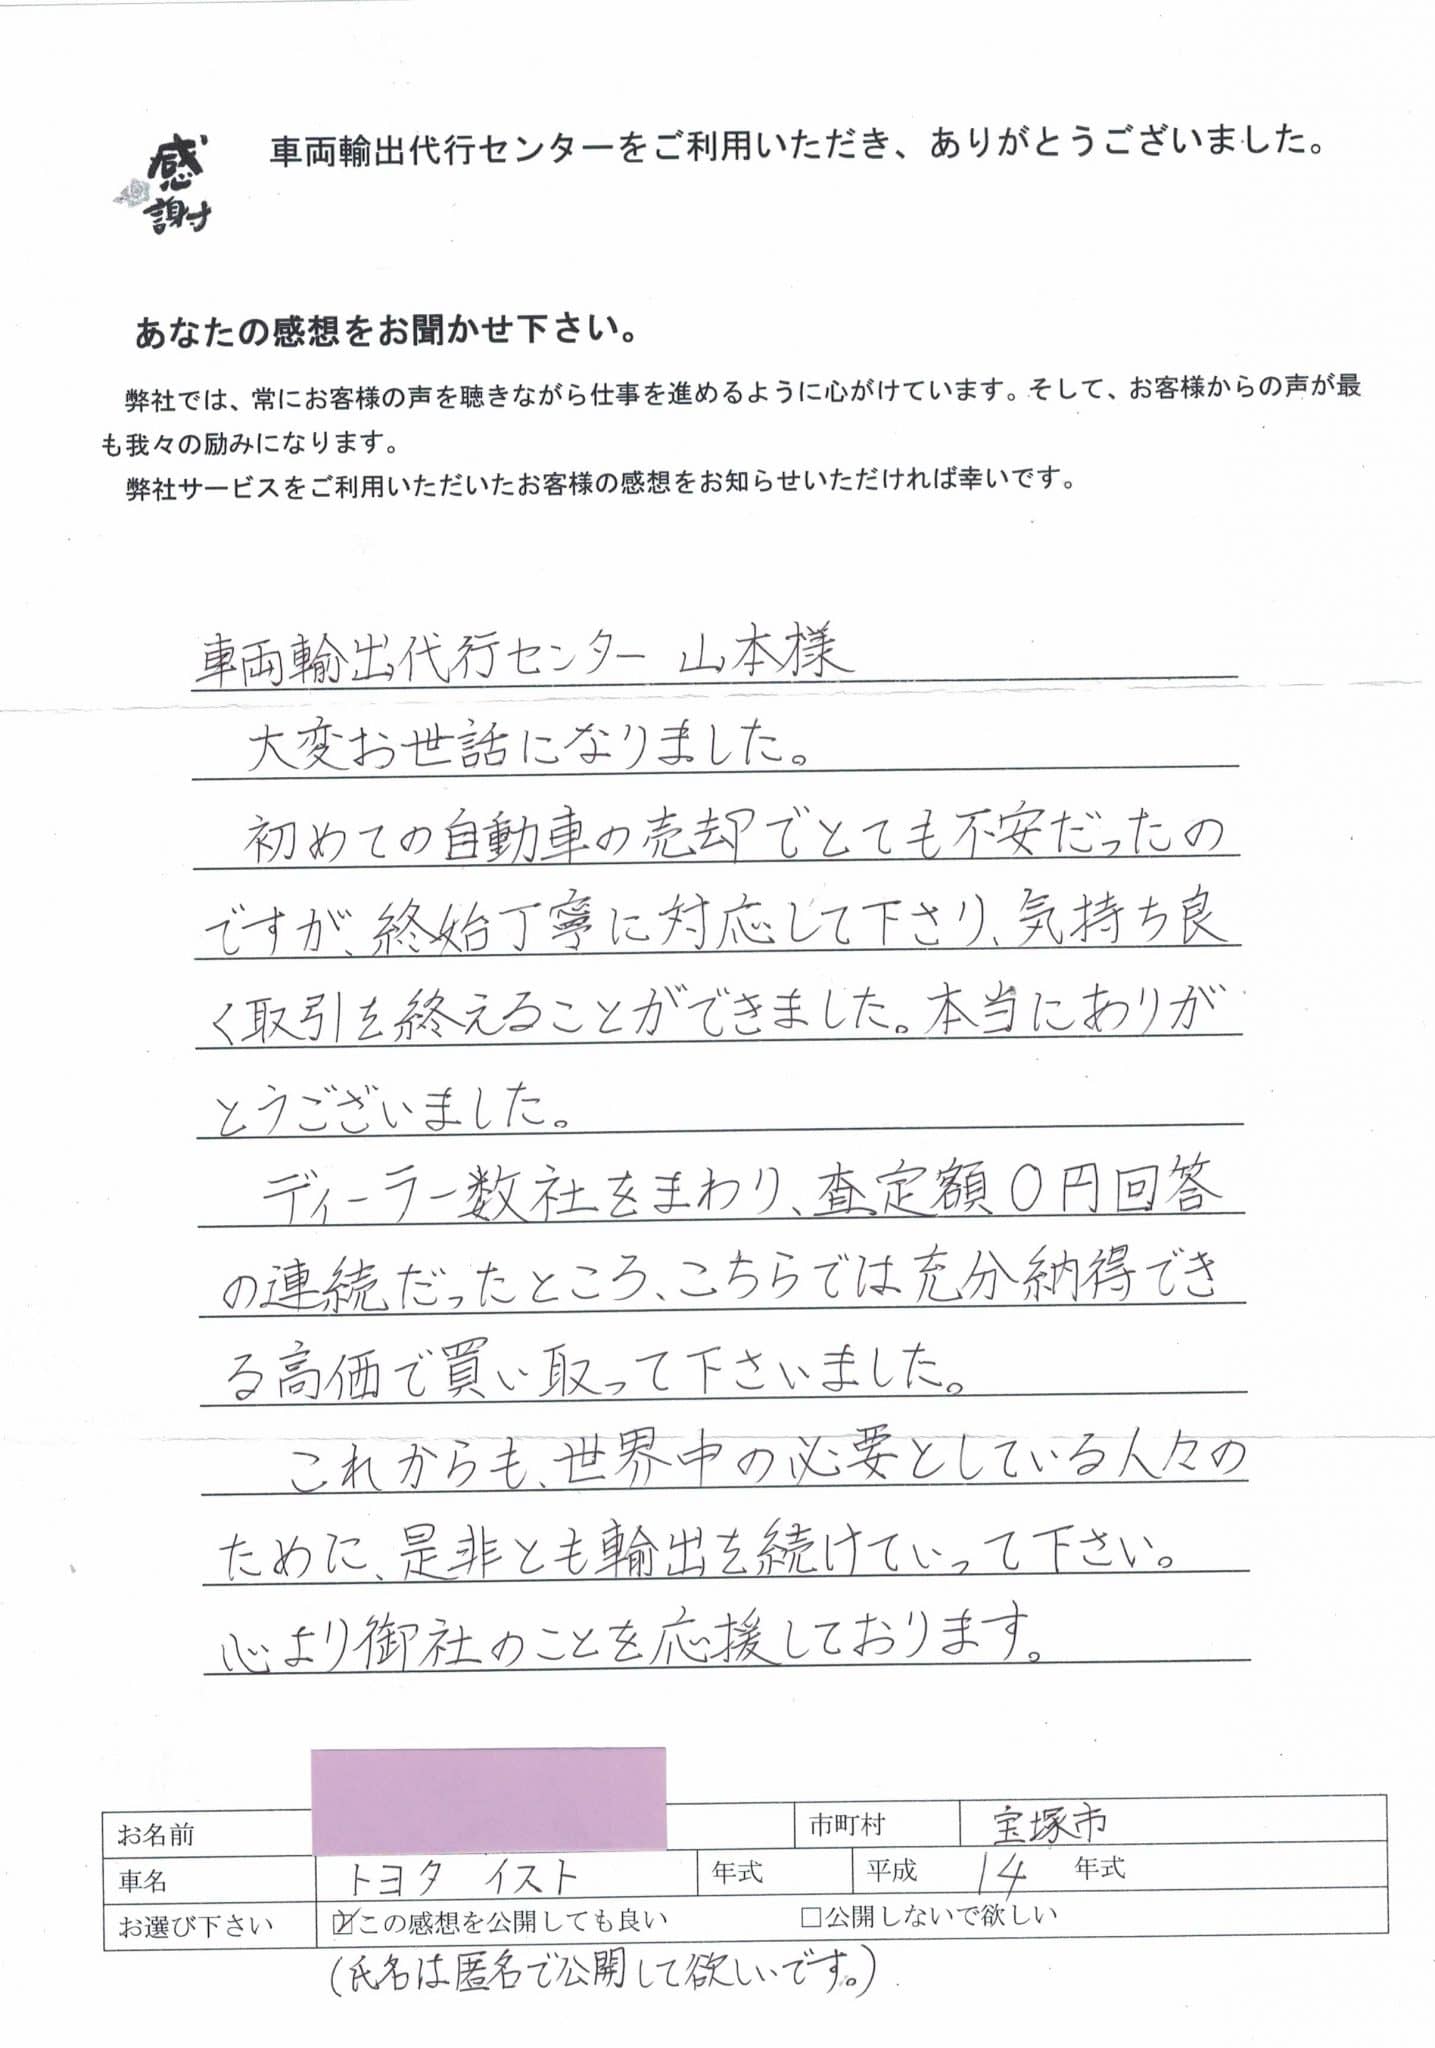 感謝
車両輸出代行センターをご利用いただき、ありがとうございました。
あなたの感想をお聞かせ下さい。
弊社では、常にお客様の声を聴きながら仕事を進めるように心がけています。そして、お客様からの声が最
も我々の励みになります。
弊社サービスをご利用いただいたお客様の感想をお知らせいただければ幸いです。
車両輸出代行センター 山本様
大変お世話になりました。
初めての自動車の売却でとても不安だったの
ですが、終始丁寧に対応して下さり、気持ち良
く取引を終えることができました。本当にありが
とうございました。
ディーラー数社をまわり、査定額0円回答
の連続だったところ、こちらでは充分納得でき
る高価で買い取って下さいました。
これからも、世界中の必要としている人々の
ために、是非とも輸出を続けていって下さい。
心より御社のことを応援しております。
お名前 市町村 宝塚市
車名 トヨタ イスト 年式 平成 14 年式
お選び下さい ☑この感想を公開しても良い □公開しないで欲しい
(氏名は匿名で公開して欲しいです。)